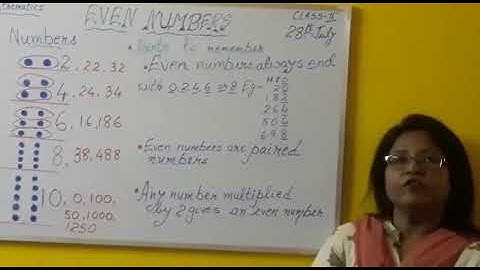 Mathematics
EVEN NUMBERS
CLASS-II
28th July
Numbers
2, 22, 32
4, 24, 34
6, 16, 186
8, 38, 488
10, 0, 100,
50, 1000,
1250
• Points to remember
• Even numbers always end
with 0, 2, 4, 6 or 8 Eg-
20
182
264
698
• Even numbers are paired
numbers
• Any number multiplied
by 2 gives an even number